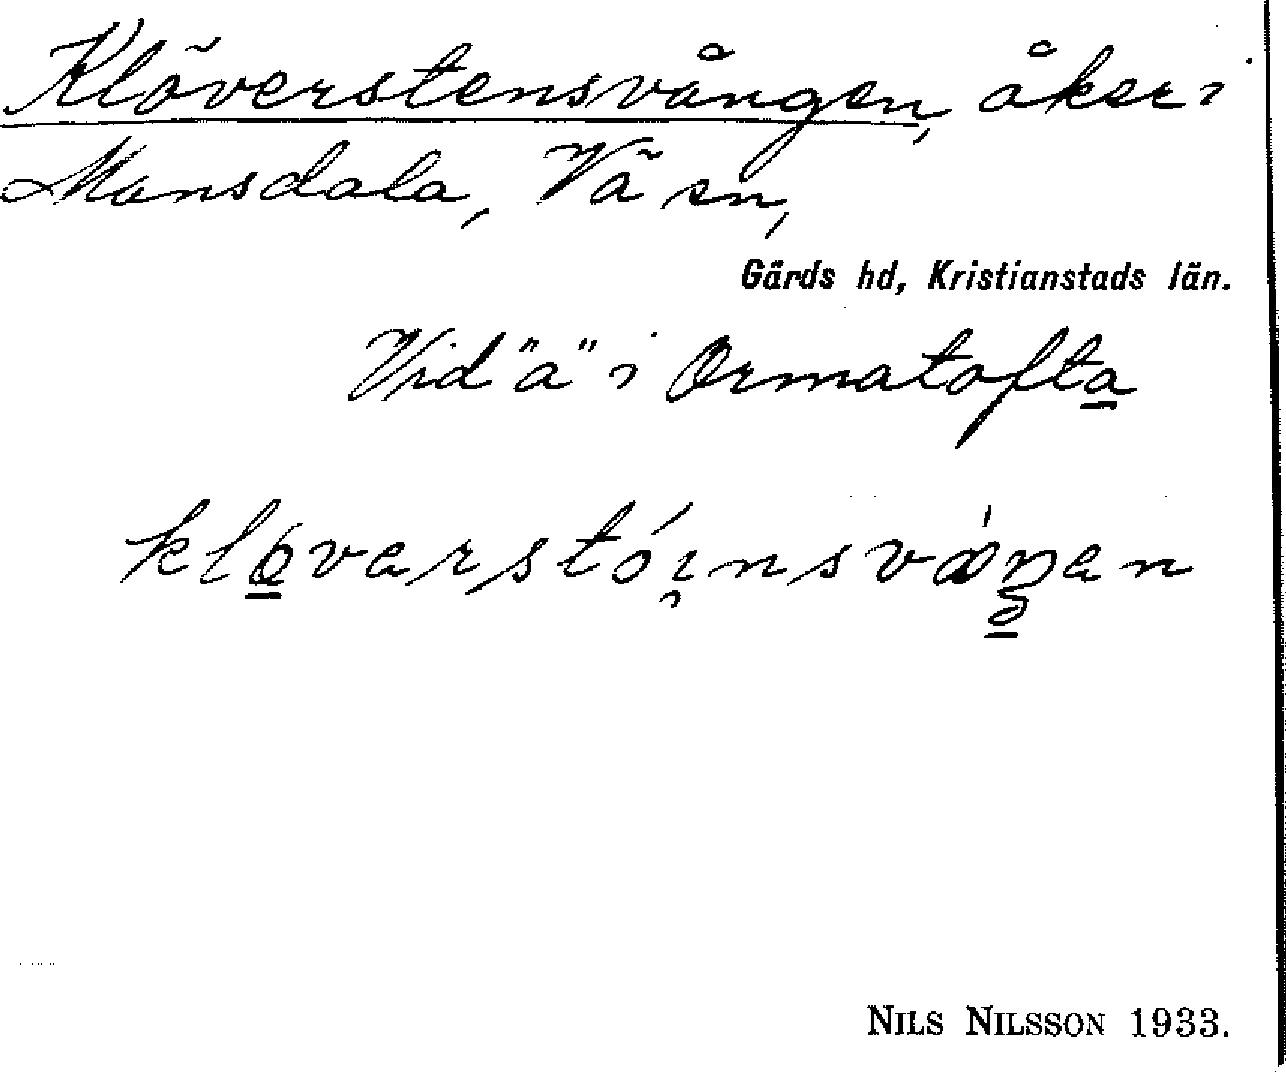 Klöverstensvången, åker i
Mansdala, Vä sn,
Gärds hd, Kristianstads län.
Vid "a" i Ormatofta
NILS NILSSON 1933.